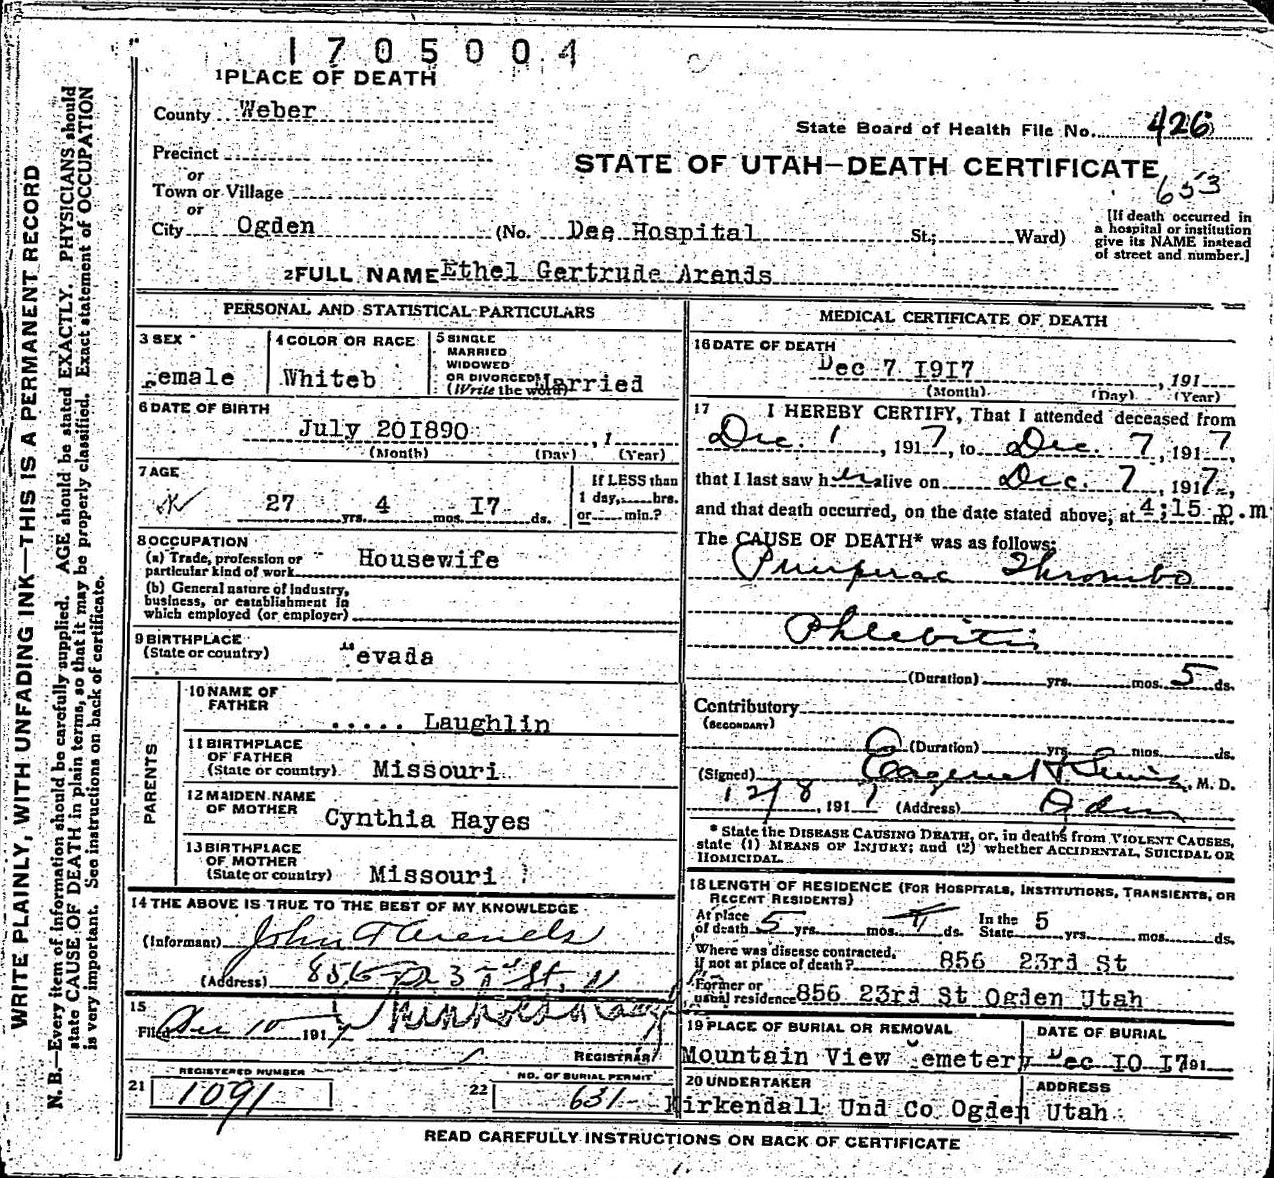 1705004
1 PLACE OF DEATH
County Weber
State Board of Health File No. 426
Precinct
or
STATE OF UTAH—DEATH CERTIFICATE
653
Town or Village
or
City Ogden (No. Dee Hospital St.; Ward)
[If death occurred in
a hospital or institution
give its NAME instead
of street and number.]
2 FULL NAME Ethel Gertrude Arends
PERSONAL AND STATISTICAL PARTICULARS
3 SEX
emale
4 COLOR OR RACE
Whiteb
5 SINGLE
MARRIED
WIDOWED
OR DIVORCED
(Write the word) Married
6 DATE OF BIRTH
July 20I890 , 1
(Month) (Day) (Year)
7 AGE
27 yrs. 4 mos. I7 ds.
If LESS than
1 day, hrs.
or min.?
8 OCCUPATION
(a) Trade, profession or
particular kind of work Housewife
(b) General nature of industry,
business, or establishment in
which employed (or employer)
9 BIRTHPLACE
(State or country) Nevada
PARENTS
10 NAME OF
FATHER ..... Laughlin
11 BIRTHPLACE
OF FATHER
(State or country) Missouri
12 MAIDEN NAME
OF MOTHER Cynthia Hayes
13 BIRTHPLACE
OF MOTHER
(State or country) Missouri
14 THE ABOVE IS TRUE TO THE BEST OF MY KNOWLEDGE
(Informant) John Arends
(Address) 856 23rd St,
15
Filed Dec 10 1917
REGISTRAR
21 REGISTERED NUMBER
1091
22 NO. OF BURIAL PERMIT
631
MEDICAL CERTIFICATE OF DEATH
16 DATE OF DEATH
Dec 7 I9I7 , 191
(Month) (Day) (Year)
17 I HEREBY CERTIFY, That I attended deceased from
Dec. 1 , 1917, to Dec. 7, 1917,
that I last saw her alive on Dec. 7, 1917,
and that death occurred, on the date stated above, at 4:15 p.m
The CAUSE OF DEATH* was as follows:
Puerperal Thrombo
Phlebitis
(Duration) yrs. mos. 5 ds.
Contributory
(SECONDARY)
(Duration) yrs. mos. ds.
(Signed) Eugene H , M. D.
12/8 , 1917 (Address) Ogden
* State the DISEASE CAUSING DEATH, or, in deaths from VIOLENT CAUSES,
state (1) MEANS OF INJURY; and (2) whether ACCIDENTAL, SUICIDAL OR
HOMICIDAL.
18 LENGTH OF RESIDENCE (FOR HOSPITALS, INSTITUTIONS, TRANSIENTS, OR
RECENT RESIDENTS)
At place
of death 5 yrs. mos. ds. In the
State 5 yrs. mos. ds.
Where was disease contracted,
if not at place of death? 856 23rd St
Former or
usual residence 856 23rd St Ogden Utah
19 PLACE OF BURIAL OR REMOVAL
Mountain View Cemetery
DATE OF BURIAL
Dec IO I7 191
20 UNDERTAKER
Kirkendall Und Co Ogden Utah
ADDRESS
READ CAREFULLY INSTRUCTIONS ON BACK OF CERTIFICATE
WRITE PLAINLY, WITH UNFADING INK—THIS IS A PERMANENT RECORD
N. B.—Every item of information should be carefully supplied. AGE should be stated EXACTLY. PHYSICIANS should
state CAUSE OF DEATH in plain terms, so that it may be properly classified. Exact statement of OCCUPATION
is very important. See instructions on back of certificate.